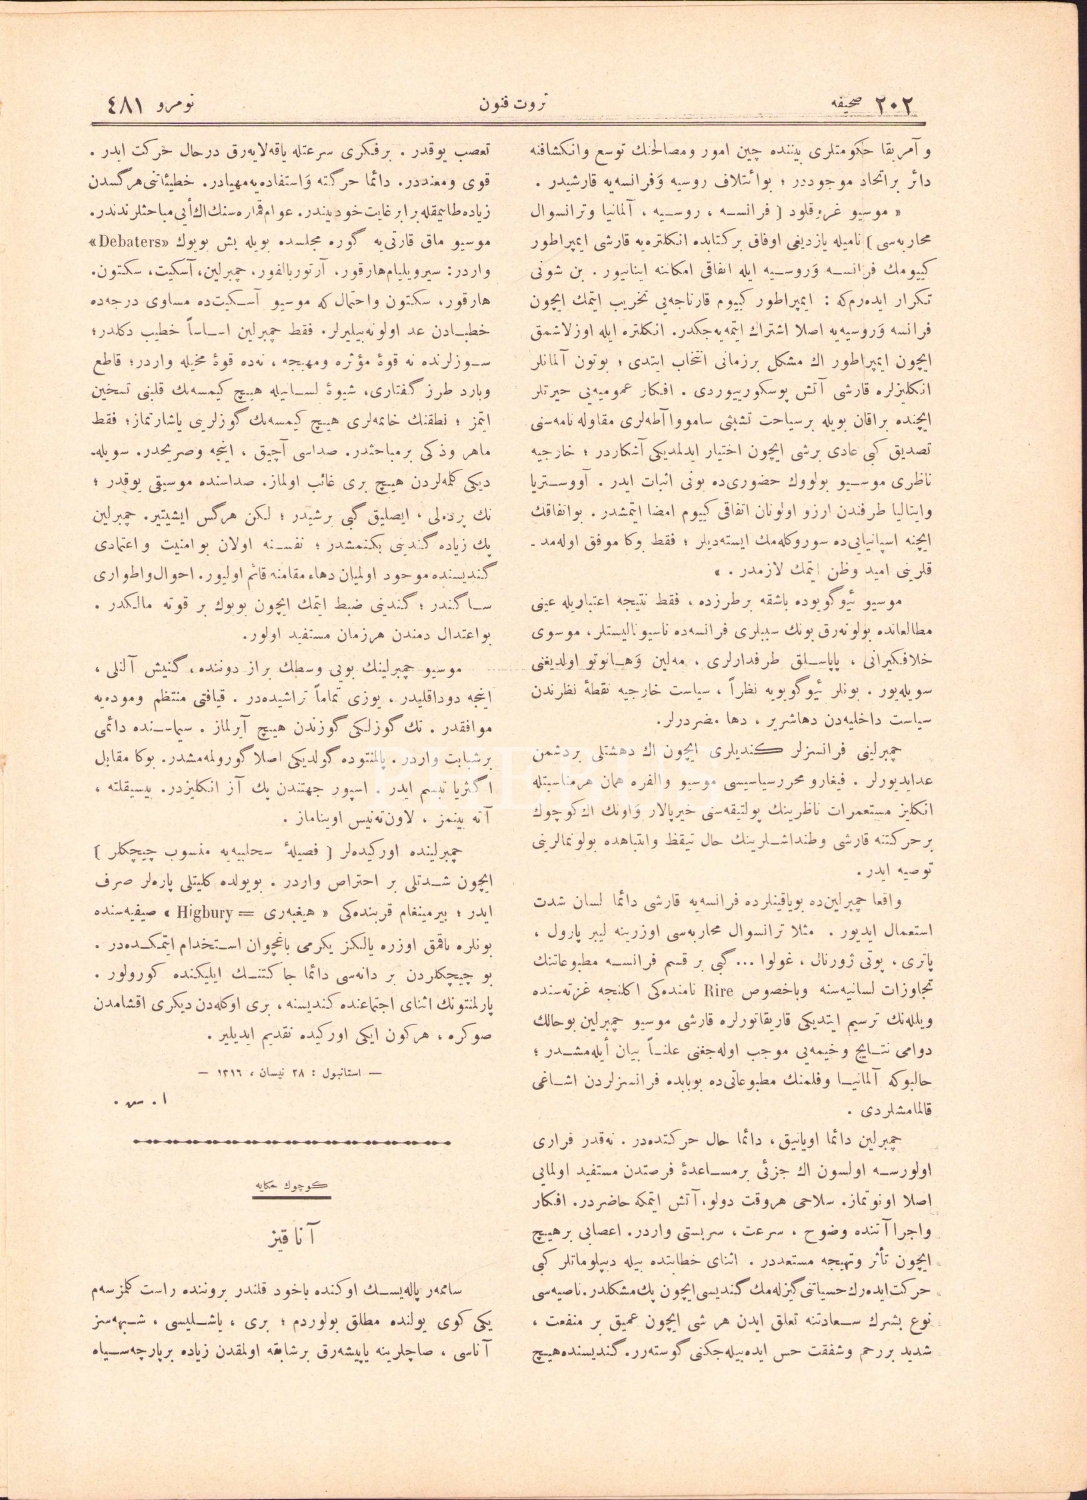 ٢٠٢ صحيفه
ثروت فنون
نومرو ٤٨١
و آمريقا حكومتلرى بيننده چين امور ومصالحنك توسع وانكشافنه
دائر براتحاد موجوددر ؛ بوائتلاف روسيه وفرانسه‌يه قارشيدر .
« موسيو غروقلود [ فرانسه ، روسيه ، آلمانيا وترانسوال
محاربه‌سى ] ناميله يازديغى اوفاق بر كتابده انكلتره‌يه قارشى ايمپراطور
كييومك فرانسه وروسيه ايله اتفاقى امكاننه اينانيور . بن شونى
تكرار ايده‌رم‌كه : ايمپراطور كييوم قارتاجه‌يى تخريب ايتمك ايچون
فرانسه وروسيه‌يه اصلا اشتراك ايتميه‌جكدر. انكلتره ايله اوزلاشمق
ايچون ايمپراطور اك مشكل برزمانى انتخاب ايتدى ؛ بوتون آلمانلر
انكليزلره قارشى آتش پوسكورييوردى . افكار عموميه‌يى حيرتلر
ايچنده براقان بويله برسياحت تشبثى ساموا آطه‌لرى مقاوله نامه‌سنى
تصديق كبى عادى برشى ايچون اختيار ايدلمديكى آشكاردر ؛ خارجيه
ناظرى موسيو بولووك حضورى‌ده بونى اثبات ايدر . آووستريا
وايتاليا طرفندن ارزو اولونان اتفاقى كييوم امضا ايتمشدر . بواتفاقك
ايچنه اسپانيايى‌ده سوروكله‌مك ايسته‌ديلر ؛ فقط بوكا موفق اوله‌مد ـ
قلرينى اميد وظن ايتمك لازمدر . »
موسيو ئيوگوبوده باشقه برطرزده ، فقط نتيجه اعتباريله عينى
مطالعانده بولونه‌رق بونك سببلرى فرانسه‌ده ناسيوناليستلر، موسوى
خلافكيرانى ، پاپاسلق طرفدارلرى ، مه‌لين وهانوتو اولديغنى
سويله‌يور . بونلر ئيوگوبويه نظراً ، سياست خارجيه نقطهٔ نظرندن
سياست داخليه‌دن دهاشرير ، دها مضردرلر.
چمبرلينى فرانسزلر كنديلرى ايچون اك دهشتلى بردشمن
عدايديورلر . فيغارو محررسياسيسى موسيو والفره همان هرمناسبتله
انكليز مستعمرات ناظرينك پولتيقه‌سنى خيرپالار واونك اك‌كوچوك
برحركتنه قارشى وطنداشلرينك حال تيقظ وانتباهده بولونمالرينى
توصيه ايدر .
واقعا چمبرلين‌ده بوياقينلرده فرانسه‌يه قارشى دائما لسان شدت
استعمال ايديور . مثلا ترانسوال محاربه‌سى اوزرينه ليبر پارول ،
پاترى ، پوتى ژورنال ، غولوا ... كبى بر قسم فرانسه مطبوعاتنك
تجاوزات لسانيه‌سنه وباخصوص Rire نامنده‌كى اكلنجه غزته‌سنده
ويللەنك ترسيم ايتديكى قاريقاتورلره قارشى موسيو چمبرلين بوحالك
دوامى نتايج وخيمه‌يى موجب اوله‌جغنى علناً بيان ايله‌مشدر ؛
حالبوكه آلمانيا وفلمنك مطبوعاتى‌ده بوبابده فرانسزلردن اشاغى
قالمامشلردى .
چمبرلين دائما اويانيق، دائما حال حركتده‌در . نه‌قدر فرارى
اولورسه اولسون اك جزئى برمساعدهٔ فرصتدن مستفيد اولمايى
اصلا اونوتماز. سلاحى هروقت دولو، آتش ايتمكه حاضردر. افكار
واجراآتنده وضوح ، سرعت ، سربستى واردر. اعصابى برهيچ
ايچون تأثر وتهيجه مستعددر . اثناى خطابتده بيله ديپلوماتلر كبى
حركت‌ايده‌رك حسياتنى گيزله‌مك گنديسى ايچون پك مشكلدر. ناصيه‌سى
نوع بشرك سعادتنه تعلق ايدن هر شى ايچون عميق بر منفعت ،
شديد بررحم وشفقت حس ايده‌بيله‌جكنى گوسته‌رر. گنديسنده هيچ
تعصب يوقدر . برفكرى سرعتله ياقه‌لايه‌رق درحال حركت ايدر .
قوى ومعنددر. دائما حركته واستفاده‌يه مهيادر. خطيئاتنى هركسدن
زياده طانيمقله برابر غايت خودبيندر. عوام قماره‌سنك اك‌أيى مباحثلرندندر.
موسيو ماق قارتى‌يه گوره مجلسده بويله بش بويوك «Debaters»
واردر: سيرويليام هارقور. آرتوربالفور، چمبرلين، آسكيت، سكتون.
هارقور، سكتون واحتمال كه موسيو آسكيت‌ده مساوى درجه‌ده
خطبادن عد اولونه‌بيليرلر. فقط چمبرلين اساساً خطيب دكلدر؛
سوزلرنده نه قوهٔ مؤثره ومهيجه ، نه‌ده قوهٔ مخيله واردر؛ قاطع
وبارد طرز گفتارى، شيوهٔ لسانيله هيچ كيمسه‌نك قلبنى تسخين
ايتمز ؛ نطقنك خاتمه‌لرى هيچ كيمسه‌نك گوزلرينى ياشارتماز؛ فقط
ماهر وذكى برمباحثدر. صداسى آچيق ، اينجه وصريحدر. سويله‌ـ
ديكى كلمه‌لردن هيچ برى غائب اولماز. صداسنده موسيقى يوقدر ؛
تك پرده‌لى ، ايصليق گبى برشيدر ؛ لكن هركس ايشيتير. چمبرلين
پك زياده گندينى بكنمشدر ؛ نفسنه اولان بوامنيت واعتمادى
گنديسنده موجود اولميان دهاء مقامنه قائم اوليور. احوال‌واطوارى
ساكندر ؛ گندينى ضبط ايتمك ايچون بويوك بر قوته مالكدر .
بو اعتدال دمندن هرزمان مستفيد اولور.
موسيو چمبرلينك بويى وسطك براز دوننده، گنيش آلنلى ،
اينجه دوداقليدر ، يوزى تماماً تراشيده‌در . قيافتى منتظم وموده‌يه
موافقدر . تك گوزلكى گوزندن هيچ آيرلماز . سيماسنده دائمى
برشبابت واردر . پارلمنتوده گولديكى اصلا گورولمه‌مشدر. بوكا مقابل
اكثريا تبسم ايدر . اسپور جهتندن پك آز انكليزدر. بيسيقلته ،
آته بينمز ، لاون‌ته‌نيس اوينماز .
چمبرلينده اوركيده‌لر [ فصيلهٔ سحلبيه‌يه منسوب چيچكلر ]
ايچون شدتلى بر احتراص واردر . بويولده كليتلى پاره‌لر صرف
ايدر ؛ بيرمينغام قربنده‌كى « هيغبه‌رى = Higbury » صيفيه‌سنده
بونلره باقمق اوزره يالكز يكرمى باغچوان استخدام ايتمكده‌در .
بو چيچكلردن بر دانه‌سى دائما جاكتنك ايليكنده كورولور .
پارلمنتونك اثناى اجتماعنده كنديسنه ، برى اوكله‌دن ديكرى اقشامدن
صوكره ، هركون ايكى اوركيده تقديم ايديلير .
— استانبول : ٢٨ نيسان ، ١٣١٦ —
ا . س .
كوچوك حكايه
آنا قيز
سانمه‌ر پاله‌يسك اوكنده ياخود فلندر بروننده راست كلمزسه‌م
يكى كوى يولنده مطلق بولوردم ؛ برى ، ياشليسى ، شبهه‌سز
آناسى ، صاچلرينه ياپيشه‌رق برشابقه اولمقدن زياده برپارچه سياه